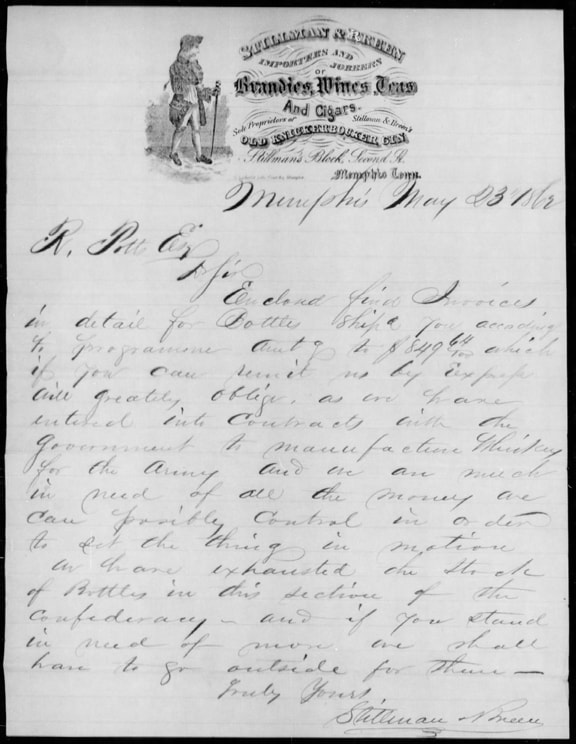 STILLMAN & BREEN
IMPORTERS AND
JOBBERS
OF
Brandies, Wines, Teas
And Cigars.
Sole Proprietors of Stillman & Breen's
OLD KNICKERBOCKER GIN
Stillman's Block, Second St.
Memphis Tenn.
Memphis May 23d 1862
R. Pott Esq
D Sir
Enclosed find Invoices
in detail for Bottles shipd you according
to programme amtg to $849 64/100 which
if you can remit us by Express
will greately oblige. as we have
entered into contracts with the
Government to manufacture Whiskey
for the Army and we are much
in need of all the money we
can possibly control in order
to set the thing in motion
We have exhausted the Stock
of Bottles in this section of the
Confederacy — and if you stand
in need of more we shall
have to go outside for them —
Truly Yours
Stillman & Breen